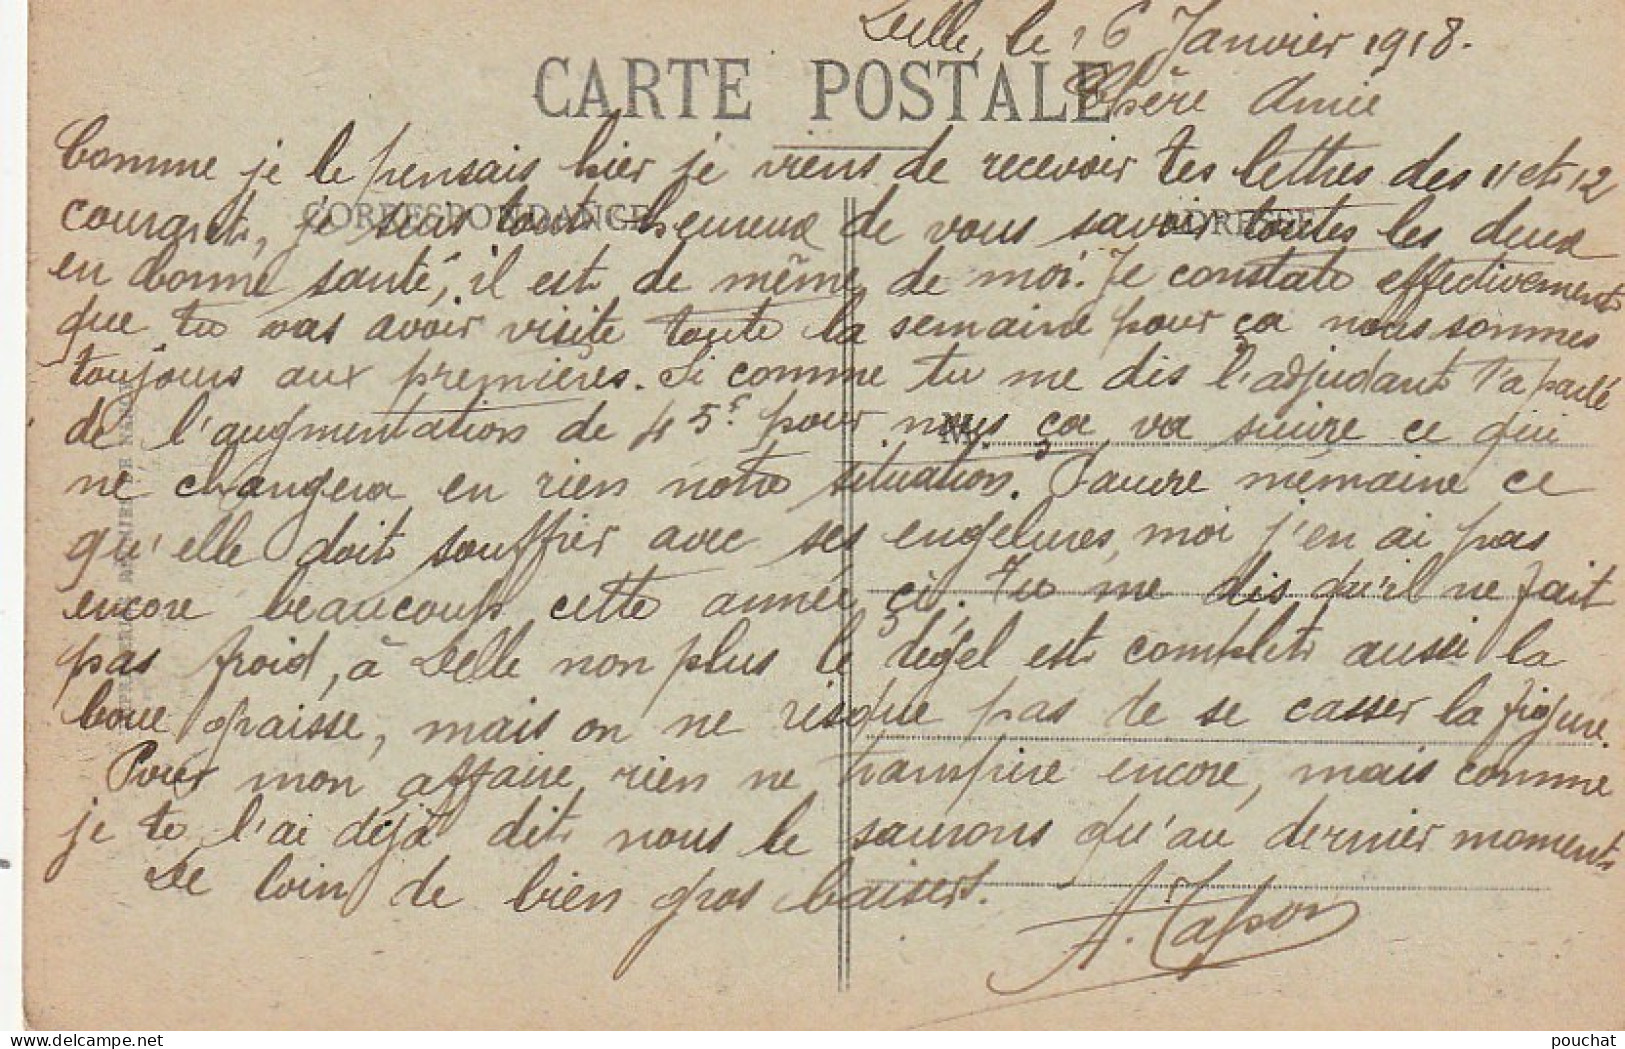 Delle, le 16 Janvier 1918.
CARTE POSTALE
Chère Amie
Comme je le pensais hier je viens de recevoir tes lettres des 11 et 12
CORRESPONDANCE
ADRESSE
courant, je suis tout heureux de vous savoir toutes les deux
en bonne santé, il est de même de moi. Je constate effectivement
que tu vas avoir visite toute la semaine pour ça nous sommes
toujours aux premières. Si comme tu me dis l'adjudant t'a parlé
de l'augmentation de 45f pour nous ça va suivre ce qui
M
ne changera en rien notre situation. Pauvre mémaine ce
qu'elle doit souffrir avec ses engelures, moi j'en ai pas
encore beaucoup cette année çi. Tu me dis qu'il ne fait
pas froid, à Delle non plus le dégel est complet aussi la
boue graisse, mais on ne risque pas de se casser la figure.
Pour mon affaire rien ne transpire encore, mais comme
je te l'ai déjà dit nous le saurons qu'au dernier moment
De loin de bien gros baisers.
A. Tapon
pouchat